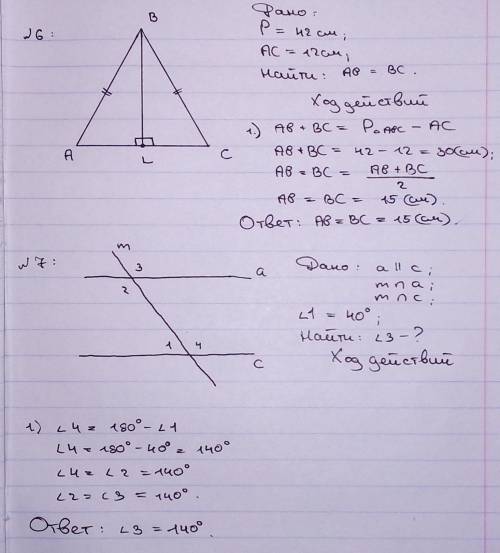 №6:
B
A
L
C
Дано:
P = 42 см;
AC = 12 см;
Найти: AB = BC.
Ход действий
1) AB + BC = P△ABC − AC
AB + BC = 42 − 12 = 30(см);
AB = BC = AB + BC / 2
AB = BC = 15 (см).
Ответ: AB = BC = 15 (см).
№7:
m
3
a
2
1
4
c
Дано: a || c;
m ∩ a;
m ∩ c;
∠1 = 40°;
Найти: ∠3 − ?
Ход действий
1) ∠4 = 180° − ∠1
∠4 = 180° − 40° = 140°
∠4 = ∠2 = 140°
∠2 = ∠3 = 140°.
Ответ: ∠3 = 140°.